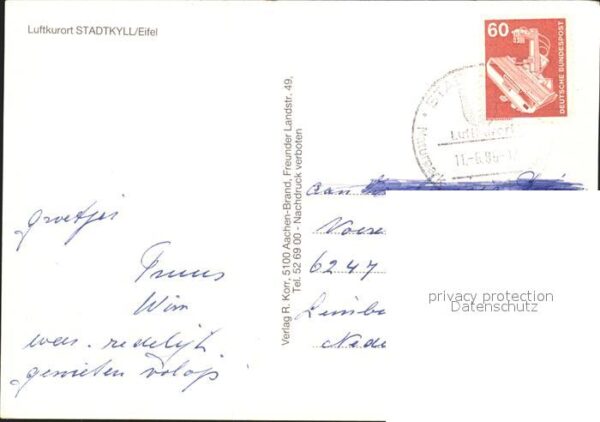 Luftkurort STADTKYLL/Eifel
60
DEUTSCHE BUNDESPOST
STA
Luftkurort
11.-6.86-1
Verlag R. Korr, 5100 Aachen-Brand, Freunder Landstr. 49,
Tel. 52 69 00 - Nachdruck verboten
groetjes
Truus
Wim
weer. redelijk
genieten volop
aan
Voere
6247
Limbu
Nede
privacy protection
Datenschutz